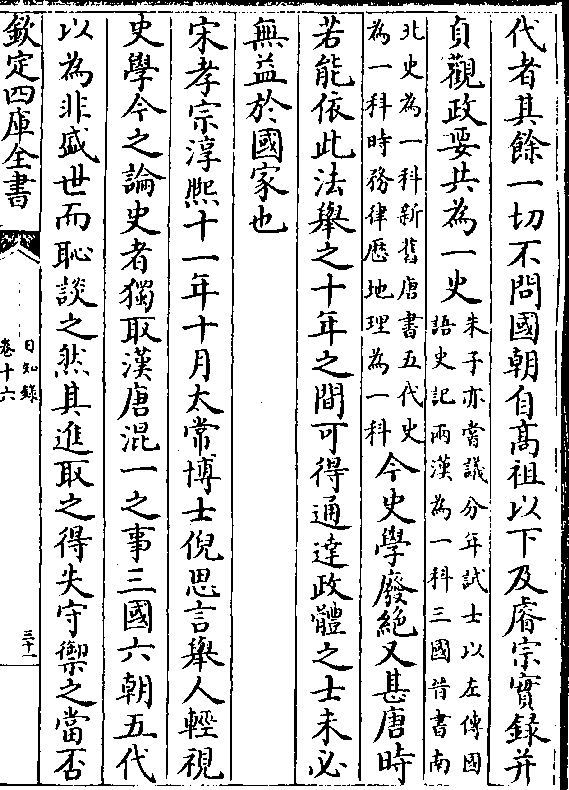 代者其餘一切不問國朝自高祖以下及睿宗實録并
貞觀政要共為一史
朱子亦嘗議分年試士以左傳國
語史記兩漢為一科三國晉書南
北史為一科新舊唐書五代史
為一科時務律歴地理為一科
今史學廢絶又甚唐時
若能依此法舉之十年之間可得通達政體之士未必
無益於國家也
宋孝宗淳熙十一年十月太常博士倪思言舉人輕視
史學今之論史者獨取漢唐混一之事三國六朝五代
以為非盛世而恥談之然其進取之得失守禦之當否
欽定四庫全書
日知録
卷十六
三十一